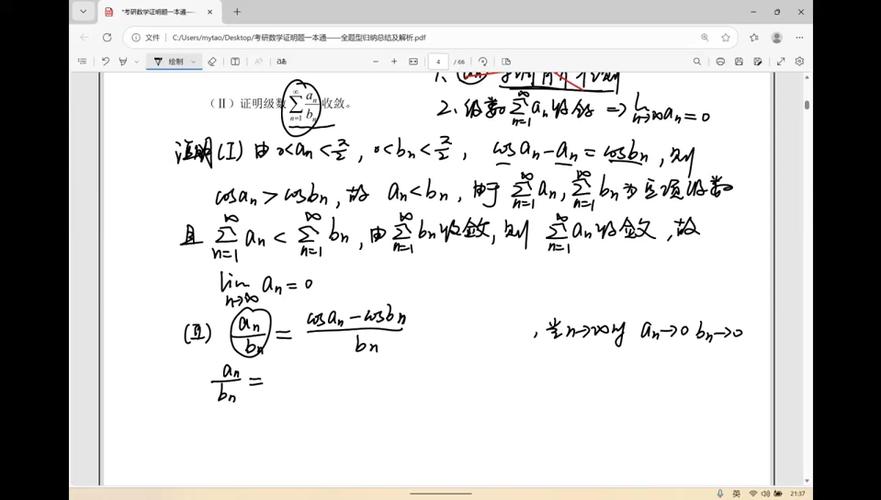 *考研数学证明题一本通——
文件 C:/Users/mytao/Desktop/考研数学证明题一本通——全题型归纳总结及解析.pdf
绘制 4 /66
(Ⅱ) 证明级数 \sum_{n=1}^{∞} a_n/b_n 收敛。
2. 级数 \sum_{n=1}^{∞} a_n 收敛 ⇒ lim_{n→∞} a_n = 0
证明 (I) 由 0<a_n<π/2, 0<b_n<π/2, cosa_n - a_n = cosb_n, 则
cosa_n > cosb_n, 故 a_n < b_n, 由于 \sum_{n=1}^{∞} a_n, \sum_{n=1}^{∞} b_n 为正项级数
且 \sum_{n=1}^{∞} a_n < \sum_{n=1}^{∞} b_n, 由 \sum_{n=1}^{∞} b_n 收敛, 则 \sum_{n=1}^{∞} a_n 收敛, 故
lim_{n→∞} a_n = 0
(Ⅱ) a_n/b_n = (cosa_n - cosb_n)/b_n , 当 n→∞时 a_n→0 b_n→0
a_n/b_n =
英 21:37